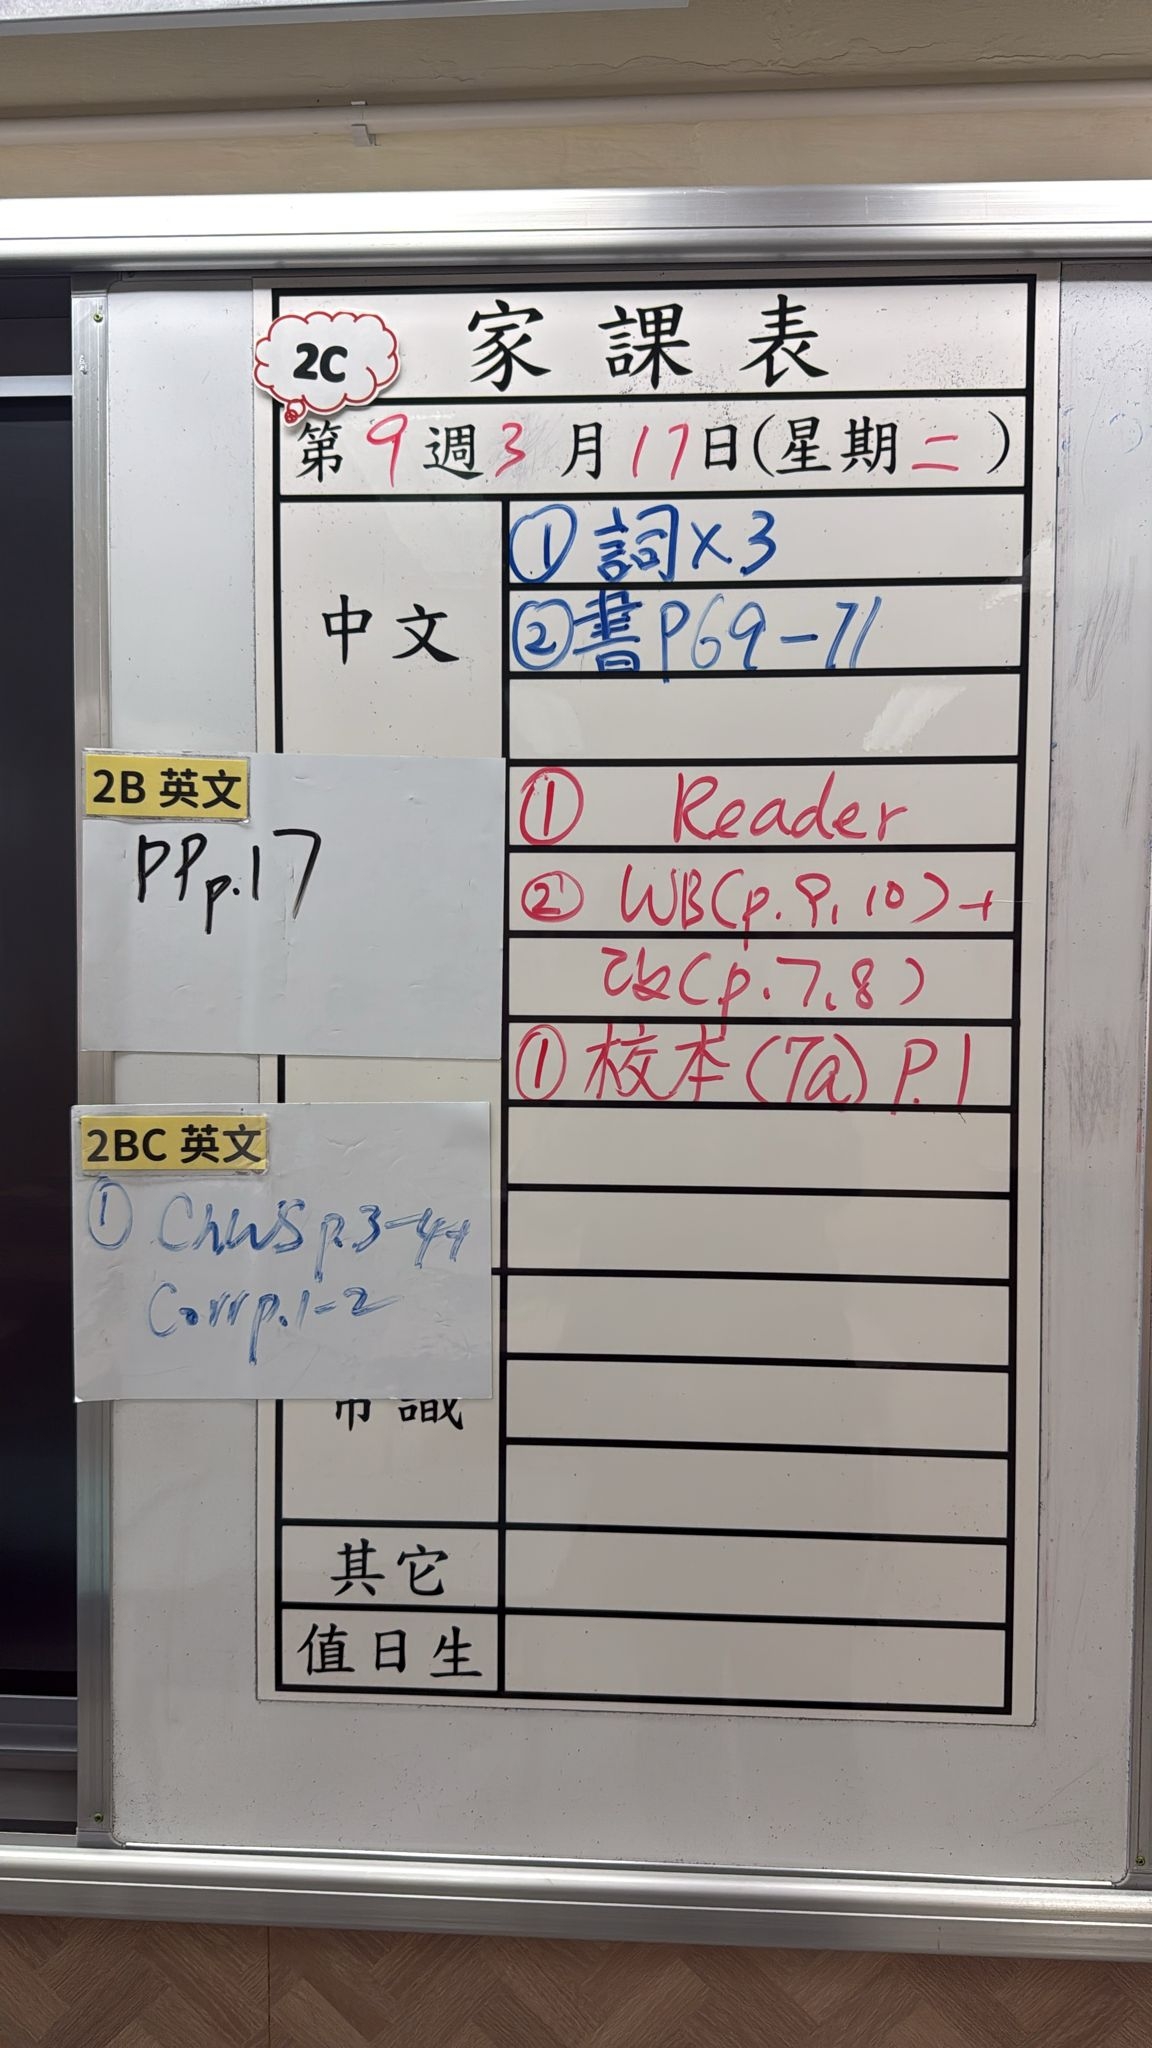 2C
家課表
第9週3月17日(星期二)
中文
① 詞×3
② 書P69-71
2B 英文
PP p.17
① Reader
② WB(p.9,10)+
改(p.7,8)
① 校本(7a) P.1
2BC 英文
① Ch.WS p.3-4+
Corr p.1-2
常識
其它
值日生